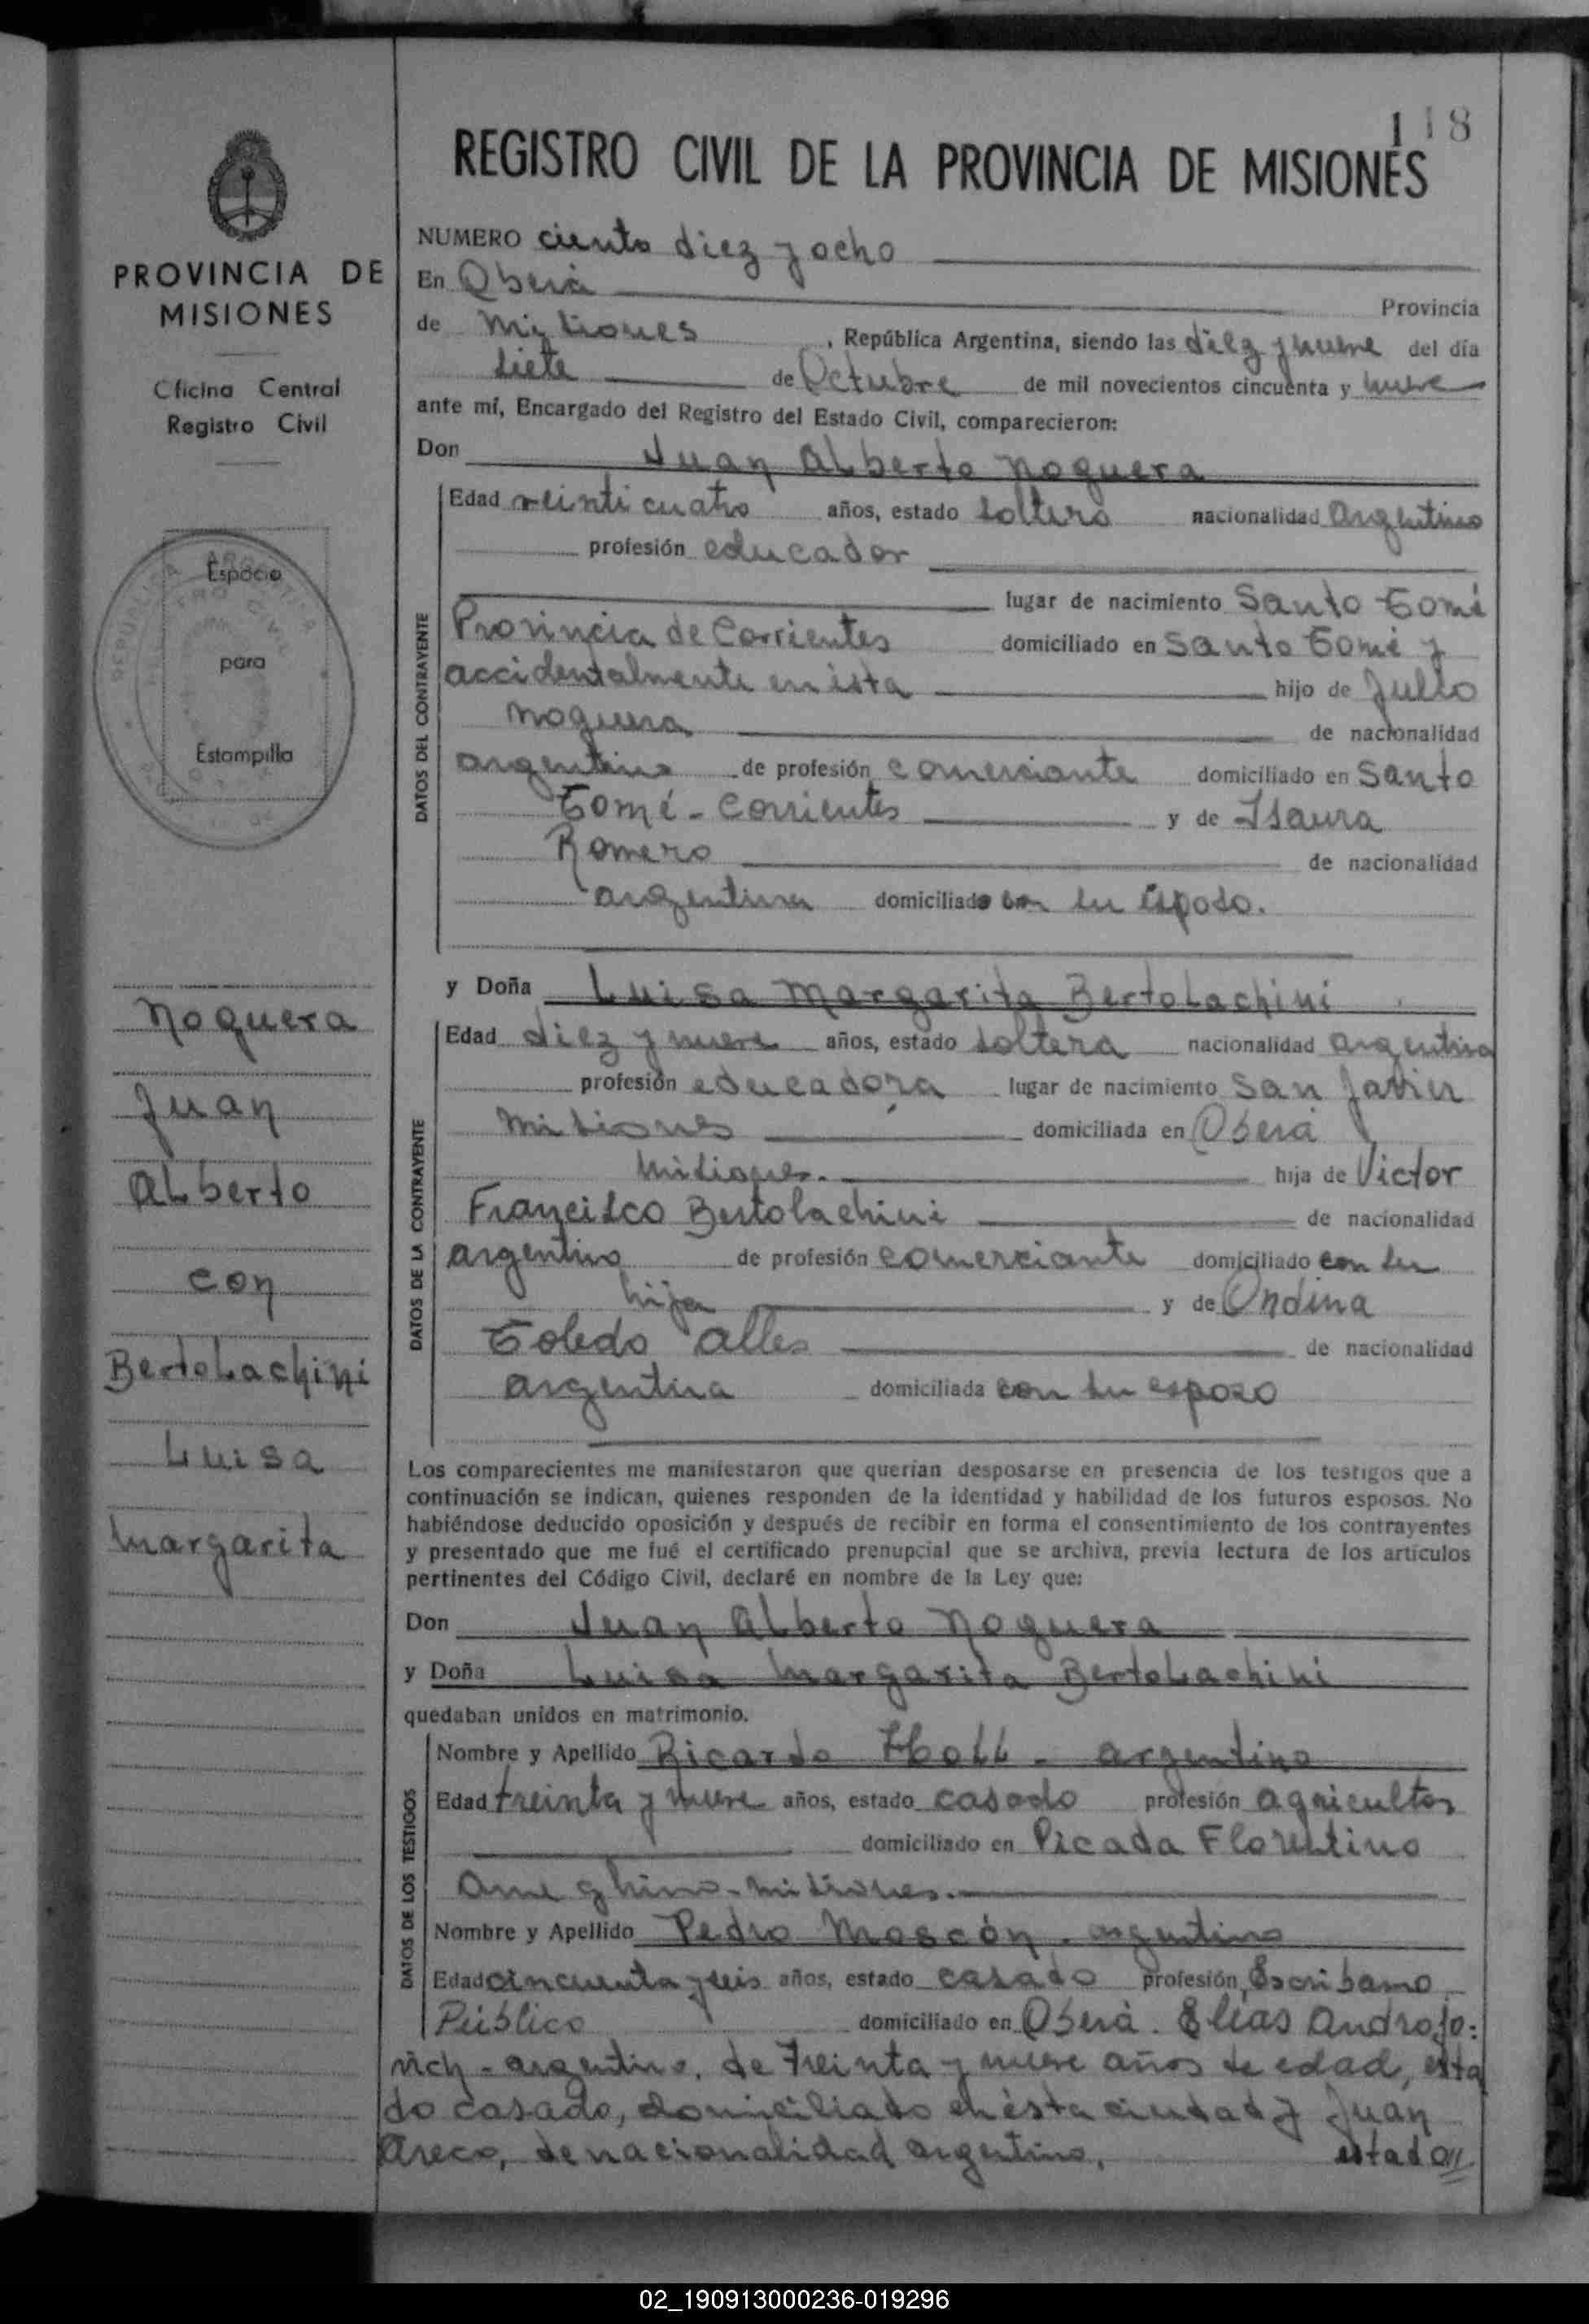 118
REGISTRO CIVIL DE LA PROVINCIA DE MISIONES
PROVINCIA DE
MISIONES
Oficina Central
Registro Civil
Espacio
para
Estampilla
Noguera
Juan
Alberto
con
Bertolachini
Luisa
Margarita
NUMERO ciento diez y ocho
En Oberá
Provincia
de Misiones , República Argentina, siendo las diez y nueve del día
siete de Octubre de mil novecientos cincuenta y nueve
ante mí, Encargado del Registro del Estado Civil, comparecieron:
Don Juan Alberto Noguera
DATOS DEL CONTRAYENTE
Edad veinticuatro años, estado soltero nacionalidad argentino
profesión educador
lugar de nacimiento Santo Tomé
Provincia de Corrientes domiciliado en Santo Tomé y
accidentalmente en ésta hijo de Julio
Noguera de nacionalidad
argentino de profesión comerciante domiciliado en Santo
Tomé - Corrientes y de Isaura
Romero de nacionalidad
argentina domiciliada con su esposo.
y Doña Luisa Margarita Bertolachini
DATOS DE LA CONTRAYENTE
Edad diez y nueve años, estado soltera nacionalidad argentina
profesión educadora lugar de nacimiento San Javier
Misiones domiciliada en Oberá
Misiones. hija de Victor
Francisco Bertolachini de nacionalidad
argentino de profesión comerciante domiciliado con su
hija y de Ondina
Toledo Alles de nacionalidad
argentina domiciliada con su esposo
Los comparecientes me manifestaron que querían desposarse en presencia de los testigos que a
continuación se indican, quienes responden de la identidad y habilidad de los futuros esposos. No
habiéndose deducido oposición y después de recibir en forma el consentimiento de los contrayentes
y presentado que me fué el certificado prenupcial que se archiva, previa lectura de los artículos
pertinentes del Código Civil, declaré en nombre de la Ley que:
Don Juan Alberto Noguera
y Doña Luisa Margarita Bertolachini
quedaban unidos en matrimonio.
DATOS DE LOS TESTIGOS
Nombre y Apellido Ricardo Holl - argentino
Edad treinta y nueve años, estado casado profesión agricultor
domiciliado en Picada Florentino
Ameghino - Misiones.
Nombre y Apellido Pedro Moscón - argentino
Edad cincuenta y seis años, estado casado profesión Escribano
Público domiciliado en Oberá. Elías Androjo=
vich - argentino, de treinta y nueve años de edad, esta
do casado, domiciliado en ésta ciudad y Juan
Areco, de nacionalidad argentino, estado//
02_190913000236-019296